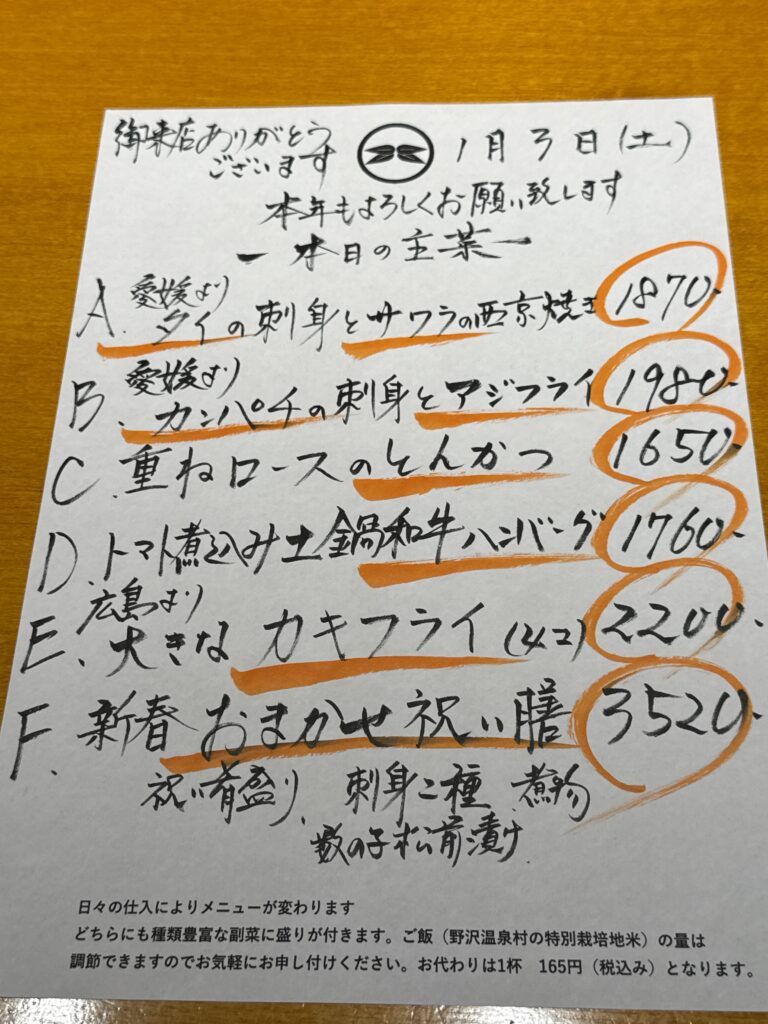 御来店ありがとう
ございます
1月3日(土)
本年もよろしくお願い致します
ー本日の主菜ー
A. 愛媛より
タイの刺身とサワラの西京焼き 1870-
B. 愛媛より
カンパチの刺身とアジフライ 1980-
C. 重ねロースのとんかつ 1650-
D. トマト煮込み土鍋和牛ハンバーグ 1760-
広島より
E、大きなカキフライ(4コ) 2200-
F. 新春おまかせ祝い膳 3520-
祝い肴盛り、刺身二種、煮物
数の子松前漬け
日々の仕入によりメニューが変わります
どちらにも種類豊富な副菜に盛りが付きます。ご飯（野沢温泉村の特別栽培地米）の量は
調節できますのでお気軽にお申し付けください。お代わりは1杯　165円（税込み）となります。